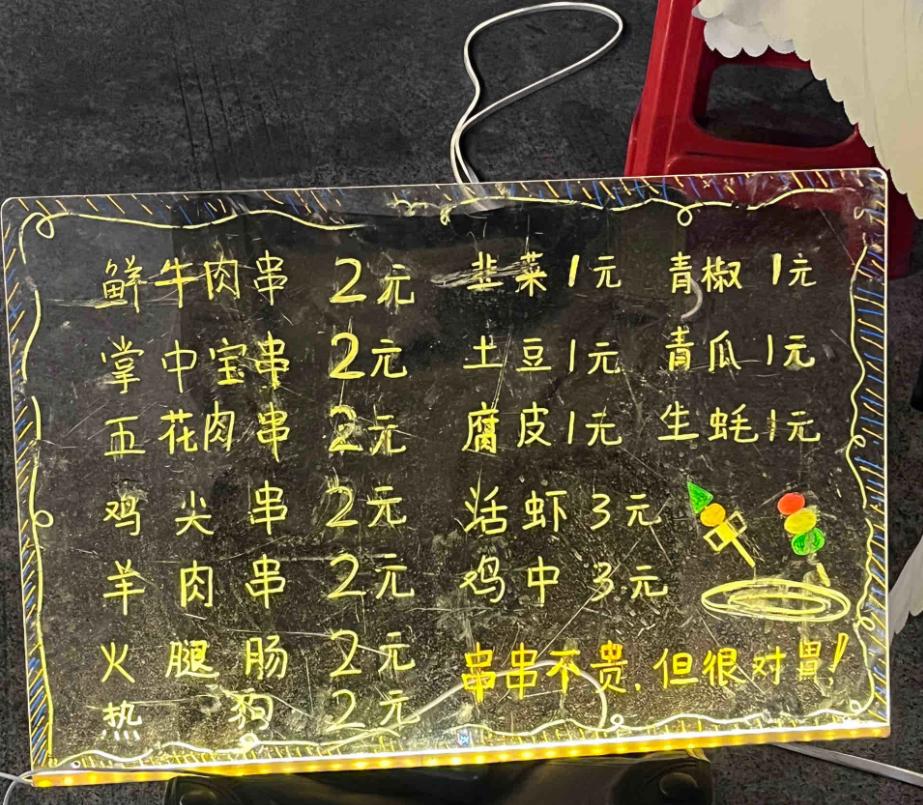 鲜牛肉串 2元 韭菜1元 青椒1元
掌中宝串 2元 土豆1元 青瓜1元
五花肉串 2元 腐皮1元 生蚝1元
鸡尖串 2元 活虾3元
羊肉串 2元 鸡中3元
火腿肠 2元 串串不贵.但很对胃!
热狗 2元